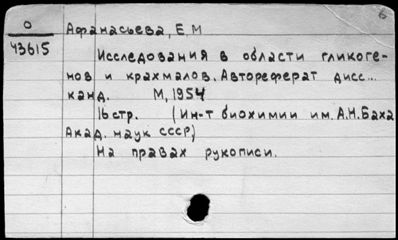 6
О
43615
Афанасьева, Е.М
Исследования в области гликоге-
нов и крахмалов. Автореферат дисс...
канд. М, 1954
16 стр. (Ин-т биохимии им. А.Н.Баха
Акад. наук СССР)
На правах рукописи.